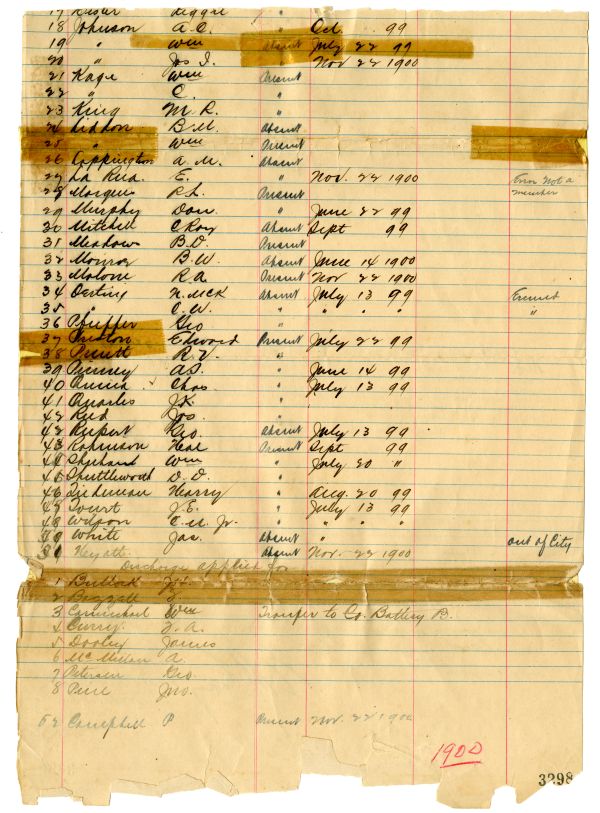 17 Lester
18 Johnson A.C. " Oct. 99
19 " Wm Absent July 22 99
20 " Jos I. " Nov 22 1900
21 Kage Wm Present
22 " C. "
23 King M. R. "
24 Liddon B.M. Absent
25 " Wm Present
26 Loppington A. M. Absent
27 La Rua E. " Nov. 22 1900 Error Not a member
28 R.L. Present
29 Murphy Don. " June 22 99
30 Mitchell C Roy Absent Sept 99
31 Meadows B.D. Present
32 Monroe B.W. Absent June 14 1900
33 Malone R A Present Nov 22 1900
34 Oerting H. McK Absent July 13 99 Excused
35 " C. W. " " " " "
36 Pfeiffer Geo "
37 Preston Edward Present July 22 99
38 R.V. "
39 A.S. " June 14 99
40 Quina Chas. " July 13 99
41 Quarles J.K. "
42 Reed Jos. "
42 Rupert Geo. Absent July 13 99
43 Robinson Hal Present Sept 99
44 Shepard Wm " July 20 "
45 Shuttleworth D. D. "
46 Tiedeman Harry " Aug. 20 99
47 Touart J.E. " July 13 99
48 Wilson C.M. Jr. " " "
49 White Jas. Absent " out of City
Absent Nov. 22 1900
Discharge applied for
1 Bullock Jas.
2
3 Carmichael Wm Transfer to Co. Battery B.
4 Curry. J. A.
5 Dooley James
6 McMillan A.
7 Petersen Geo.
8 Jno.
52 Campbell P Present Nov. 22 1900
1900
3298